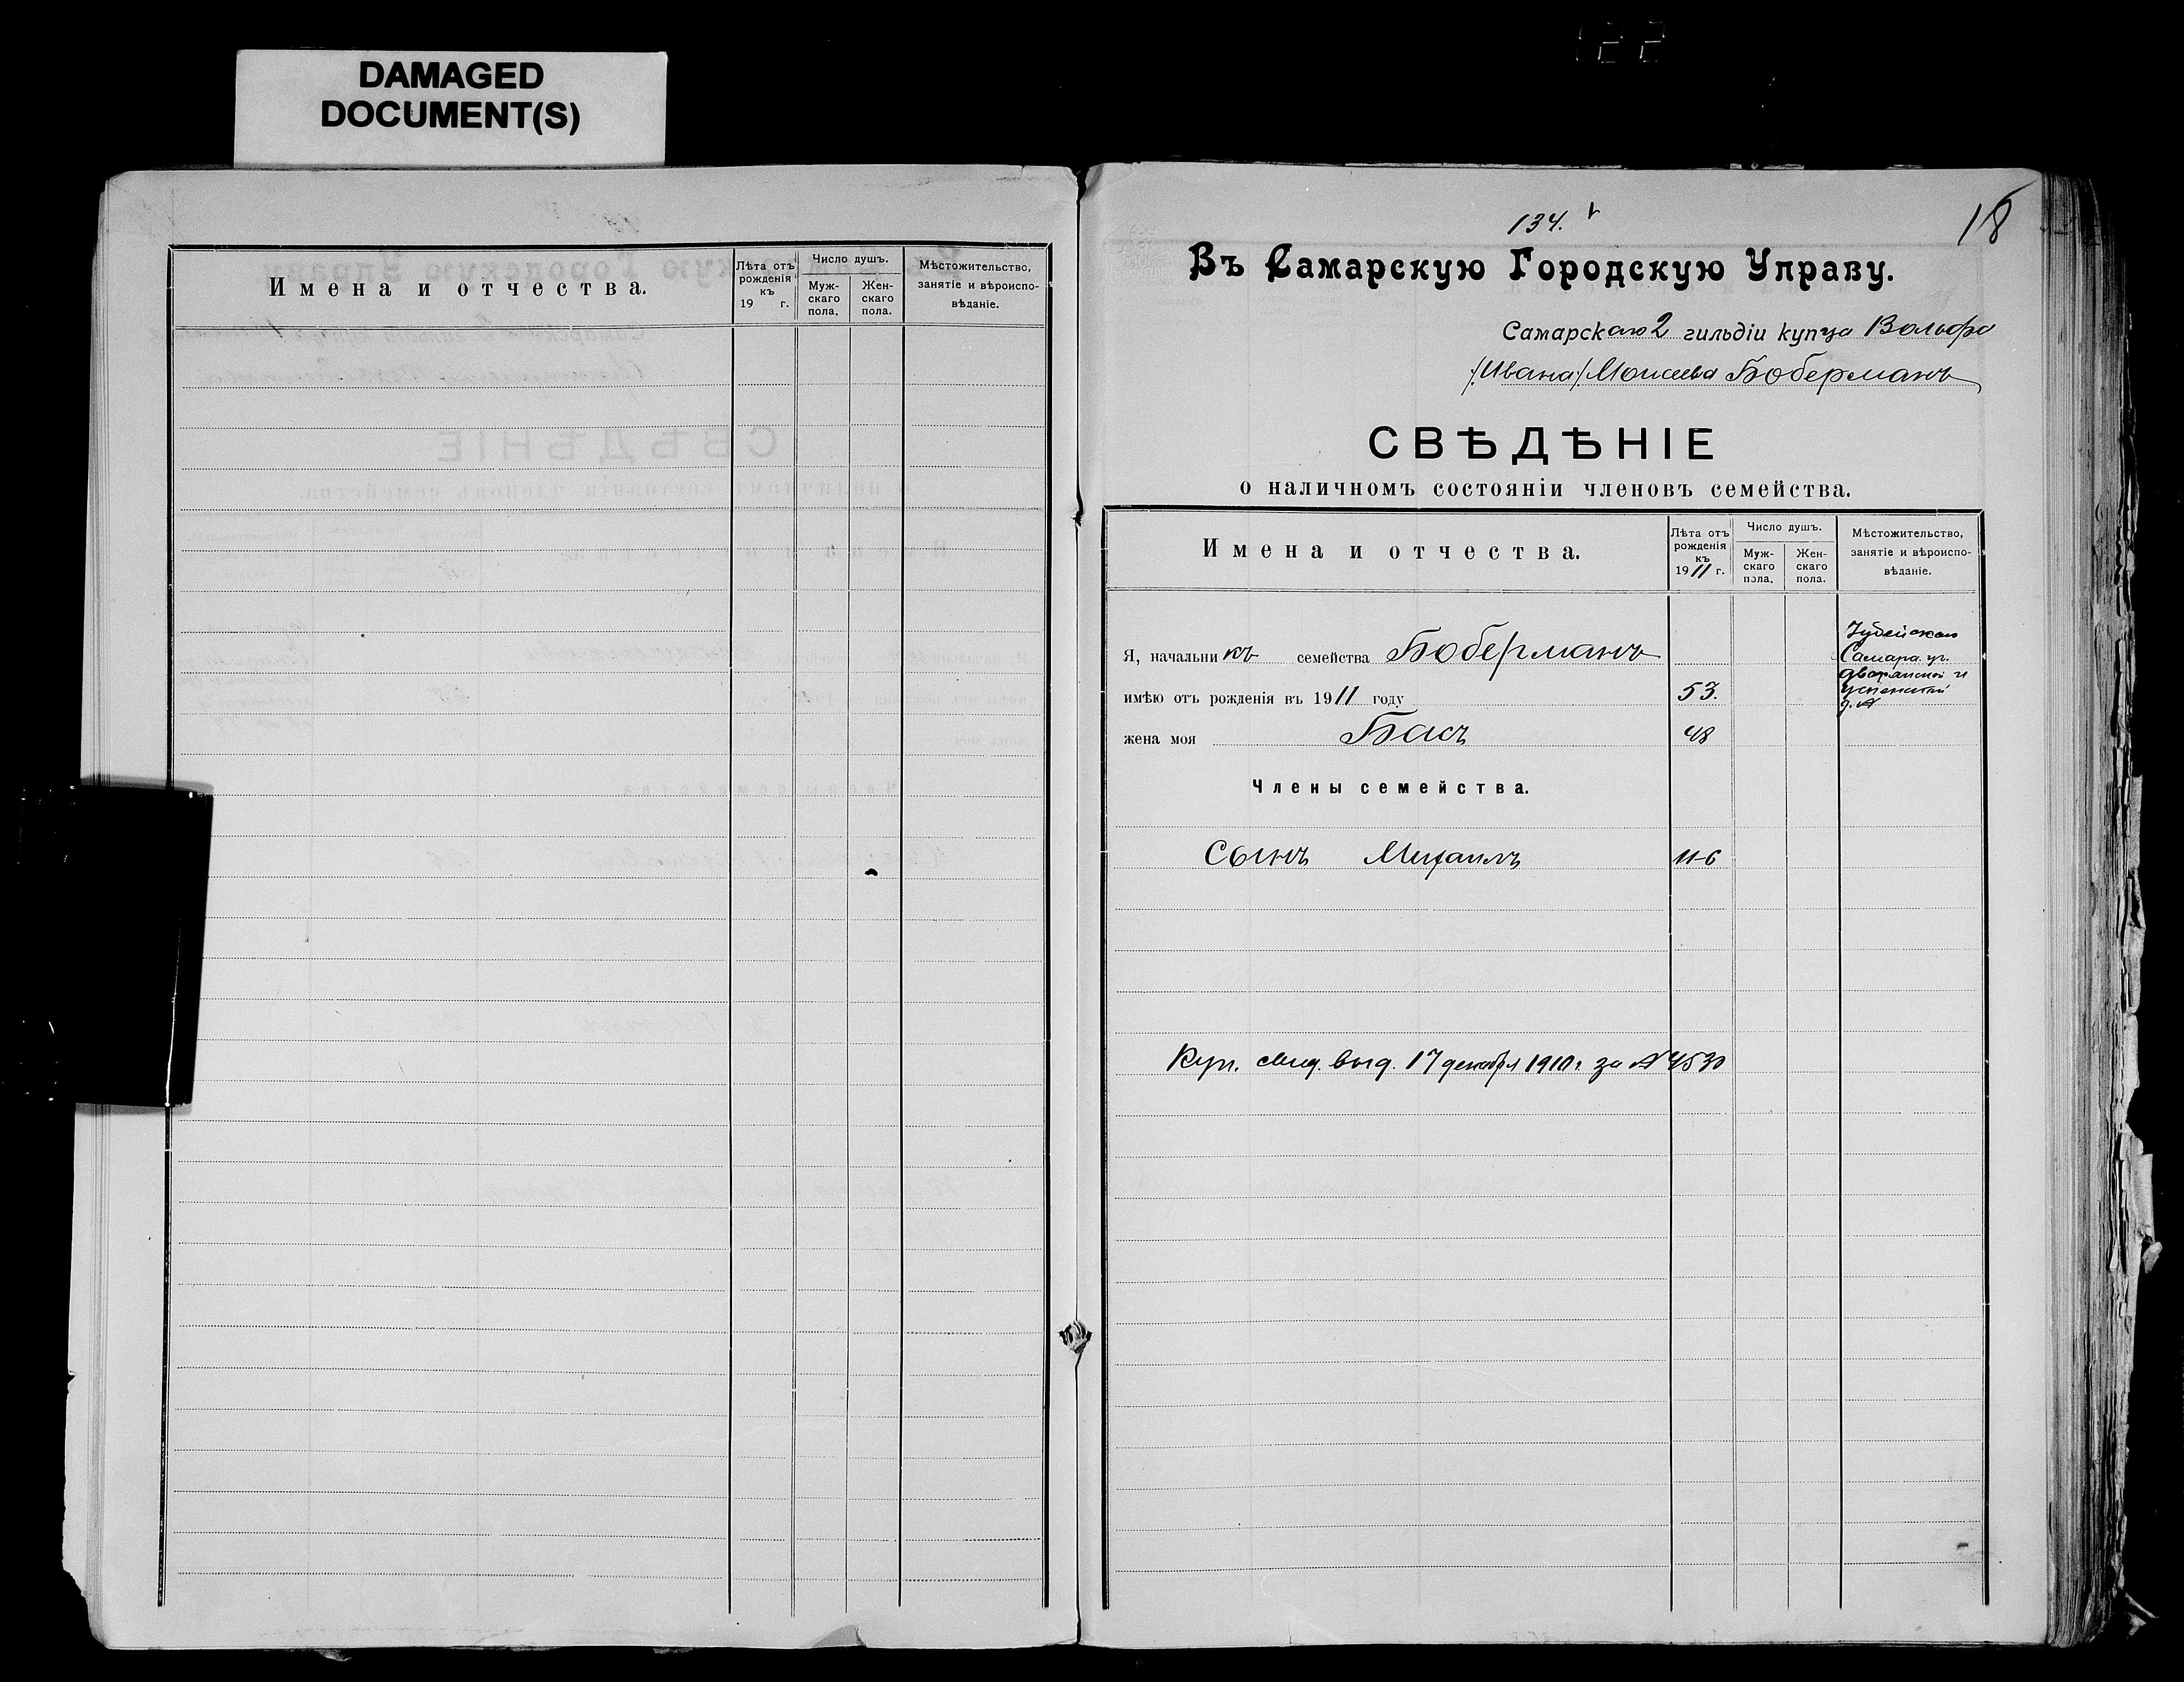 122
DAMAGED
DOCUMENT(S)
Имена и отчества.
Лѣта отъ рожденія къ 19 г.
Число душъ.
Мужскаго пола.
Женскаго пола.
Мѣстожительство, занятіе и вѣроисповѣданіе.
134.
18
Въ Самарскую Городскую Управу.
Самарскаго 2 гильдіи купца Вольфа
/Ивана/ Моисеева Боберманъ
СВѢДѢНІЕ
о наличномъ состояніи членовъ семейства.
Имена и отчества.
Лѣта отъ рожденія къ 1911 г.
Число душъ.
Мужскаго пола.
Женскаго пола.
Мѣстожительство, занятіе и вѣроисповѣданіе.
Я, начальникъ семейства Боберманъ
имѣю отъ рожденія въ 1911 году 53.
Самара. уг.
дворянской и
успенской
д. №
жена моя 48
Члены семейства.
Сынъ Михаилъ 11-6
Куп. свид. выд. 17 декабря 1910 г. за № 4530